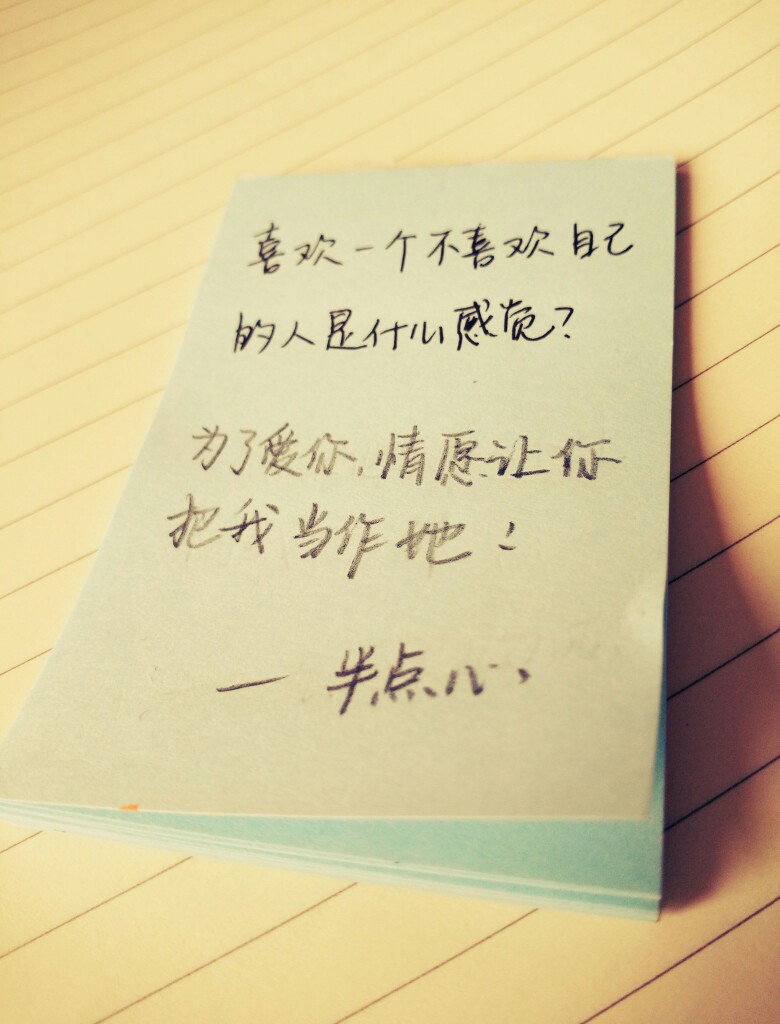 喜欢一个不喜欢自己
的人是什么感觉?
为了爱你,情愿让你
把我当作她!
— 半点心